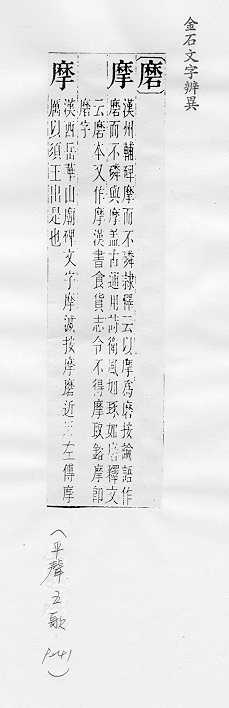 金石文字辨異
〔磨〕
摩 漢州輔碑摩而不磷隸釋云以摩爲磨按論語作
磨而不磷與摩葢古通用詩衛風如琢如磨釋文
云磨本又作摩漢書食貨志令不得摩取鋊摩卽
磨字
摩 漢西岳華山廟碑文字摩滅按摩磨近三左傳摩
厲以須王出是也
(平聲五歌
P.241)